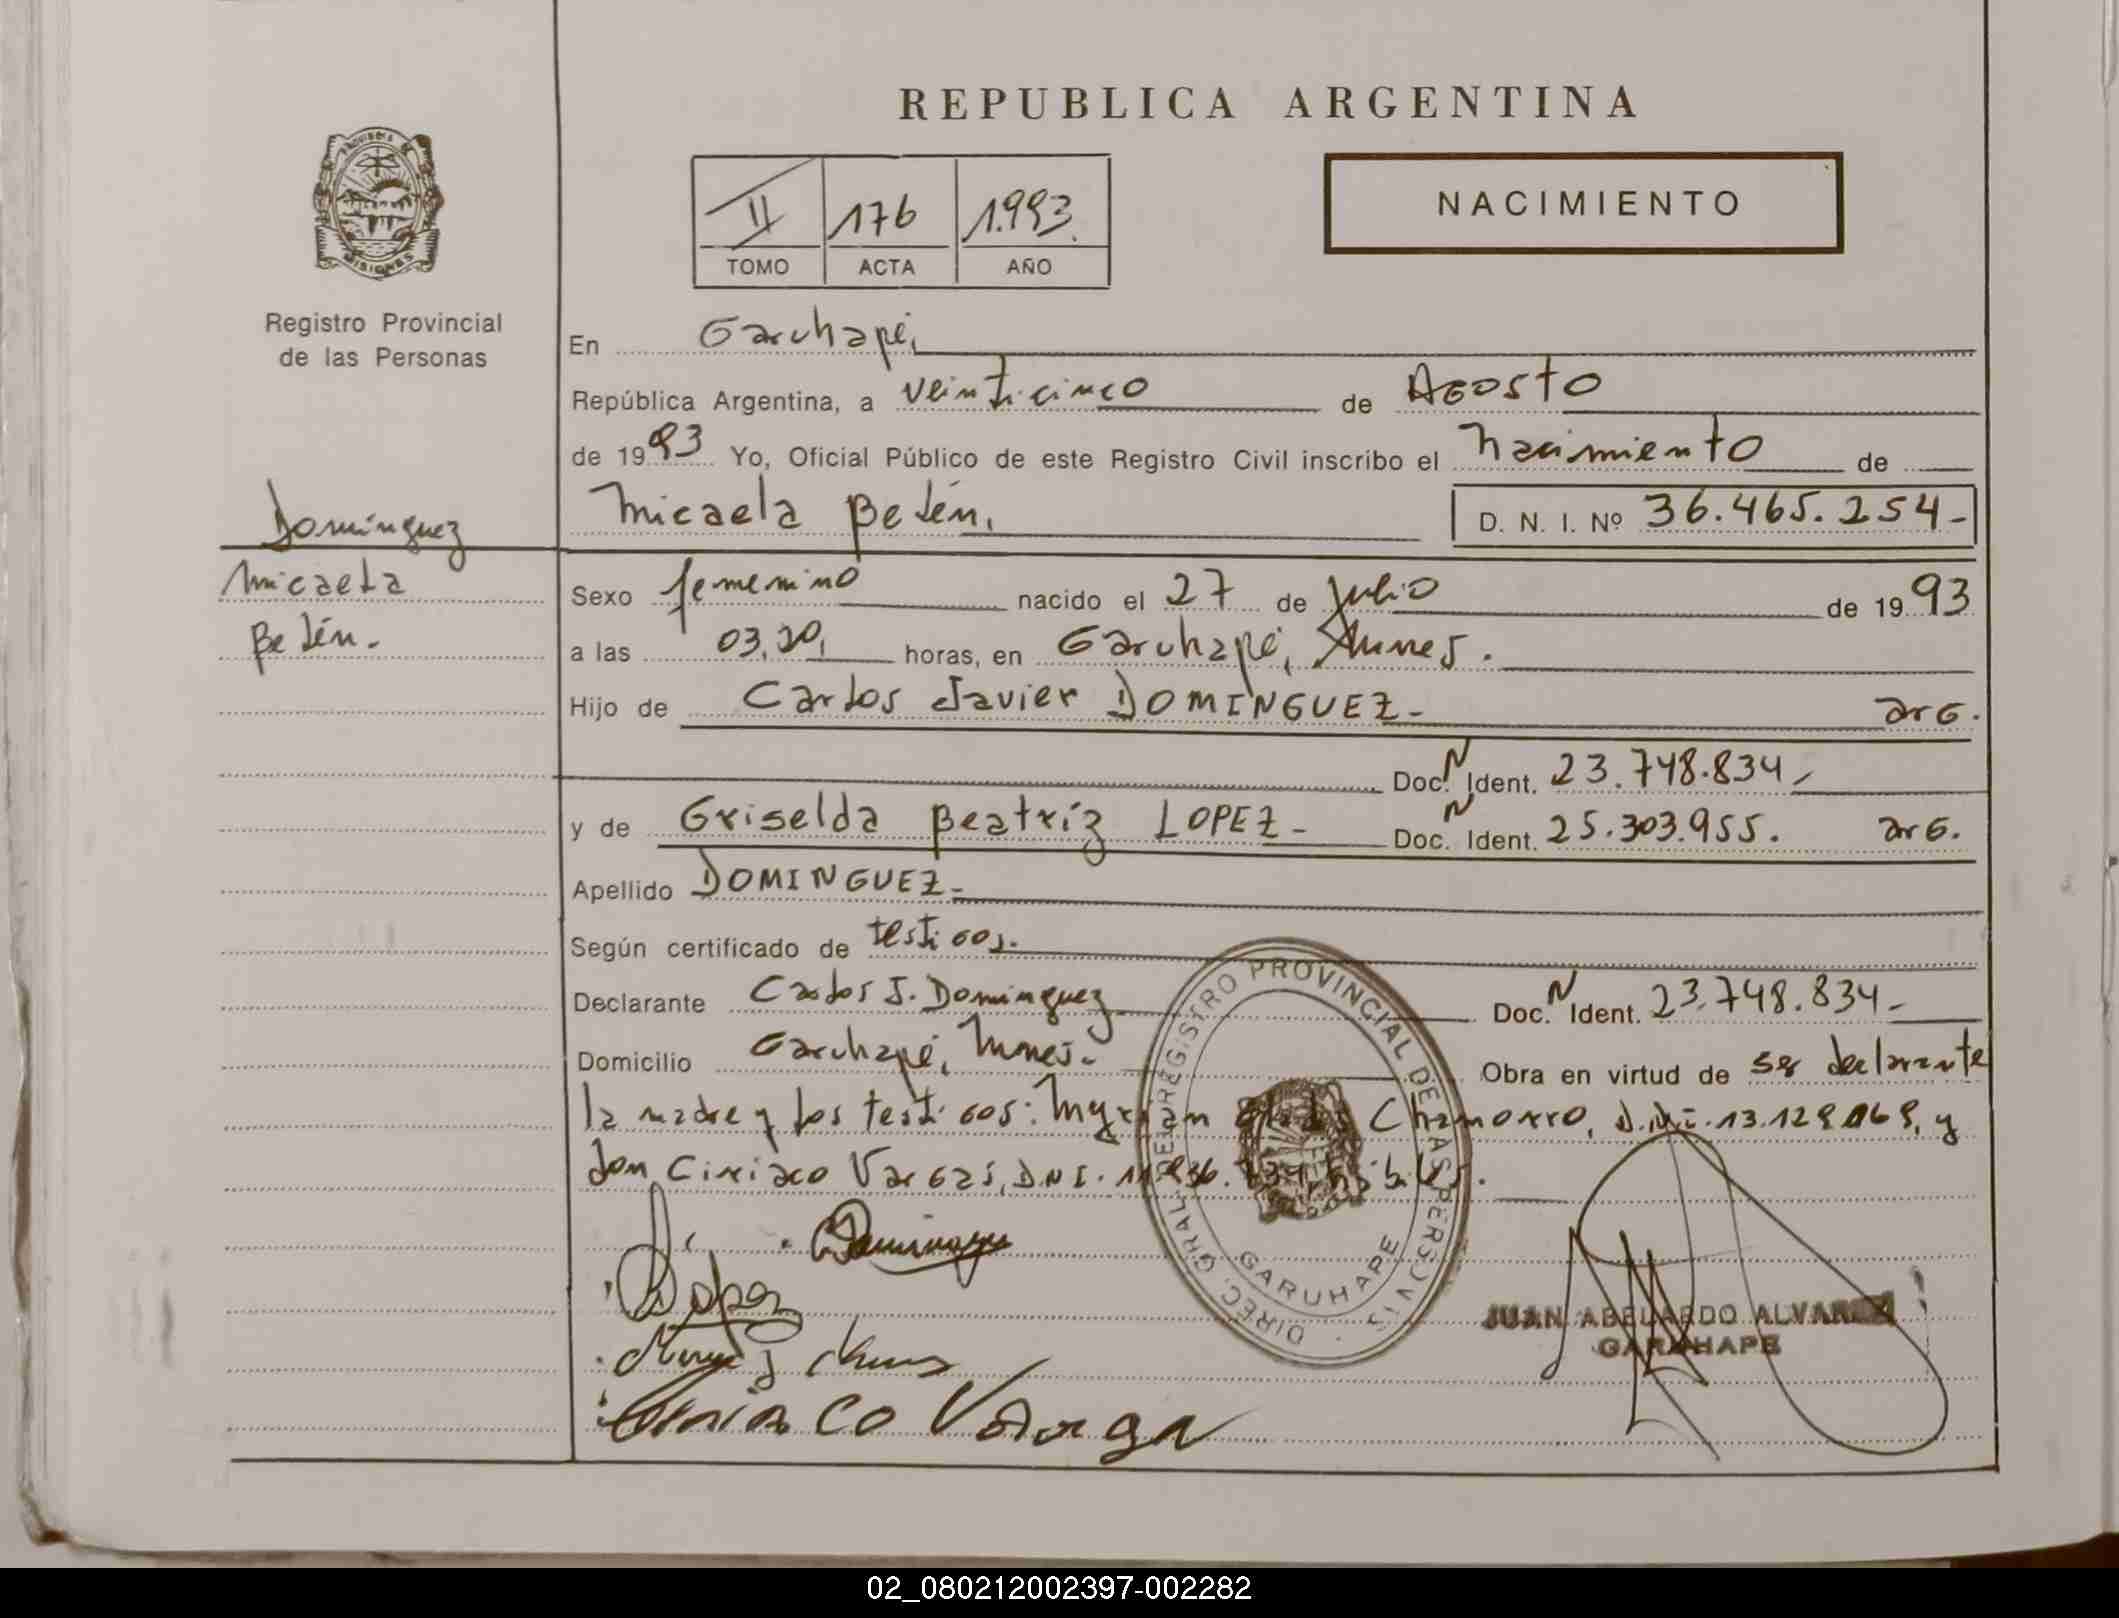 REPUBLICA ARGENTINA
PROVINCIA DE
MISIONES
Registro Provincial
de las Personas
II 176 1.993.
TOMO ACTA AÑO
NACIMIENTO
En Garuhapé,
República Argentina, a veinticinco de Agosto
de 1993 Yo, Oficial Público de este Registro Civil inscribo el Nacimiento de
Micaela Belén, D. N. I. Nº 36.465.254-
Domínguez
Micaela
Belén.
Sexo femenino nacido el 27 de Julio de 1993
a las 03,20, horas, en Garuhapé, Mnes.
Hijo de Carlos Javier DOMINGUEZ- arg.
Doc. N Ident. 23.748.834,
y de Griselda Beatríz LOPEZ- Doc. N Ident. 25.303.955. arg.
Apellido DOMINGUEZ-
Según certificado de testigos.
Declarante Carlos J. Domínguez Doc. N Ident. 23.748.834-
Domicilio Garuhapé, Mnes.- Obra en virtud de ser declarante
la madre y los testigos: Myrian Chamorro, D.N.I. y
don Ciriaco Vargas, D.N.I. hábiles.
Dominguez
Lopez
Ciriaco Varga
DIREC. GRAL. DEL REGISTRO PROVINCIAL DE LAS PERSONAS
GARUHAPE
JUAN ABELARDO ALVAREZ
GARUHAPE
02_080212002397-002282